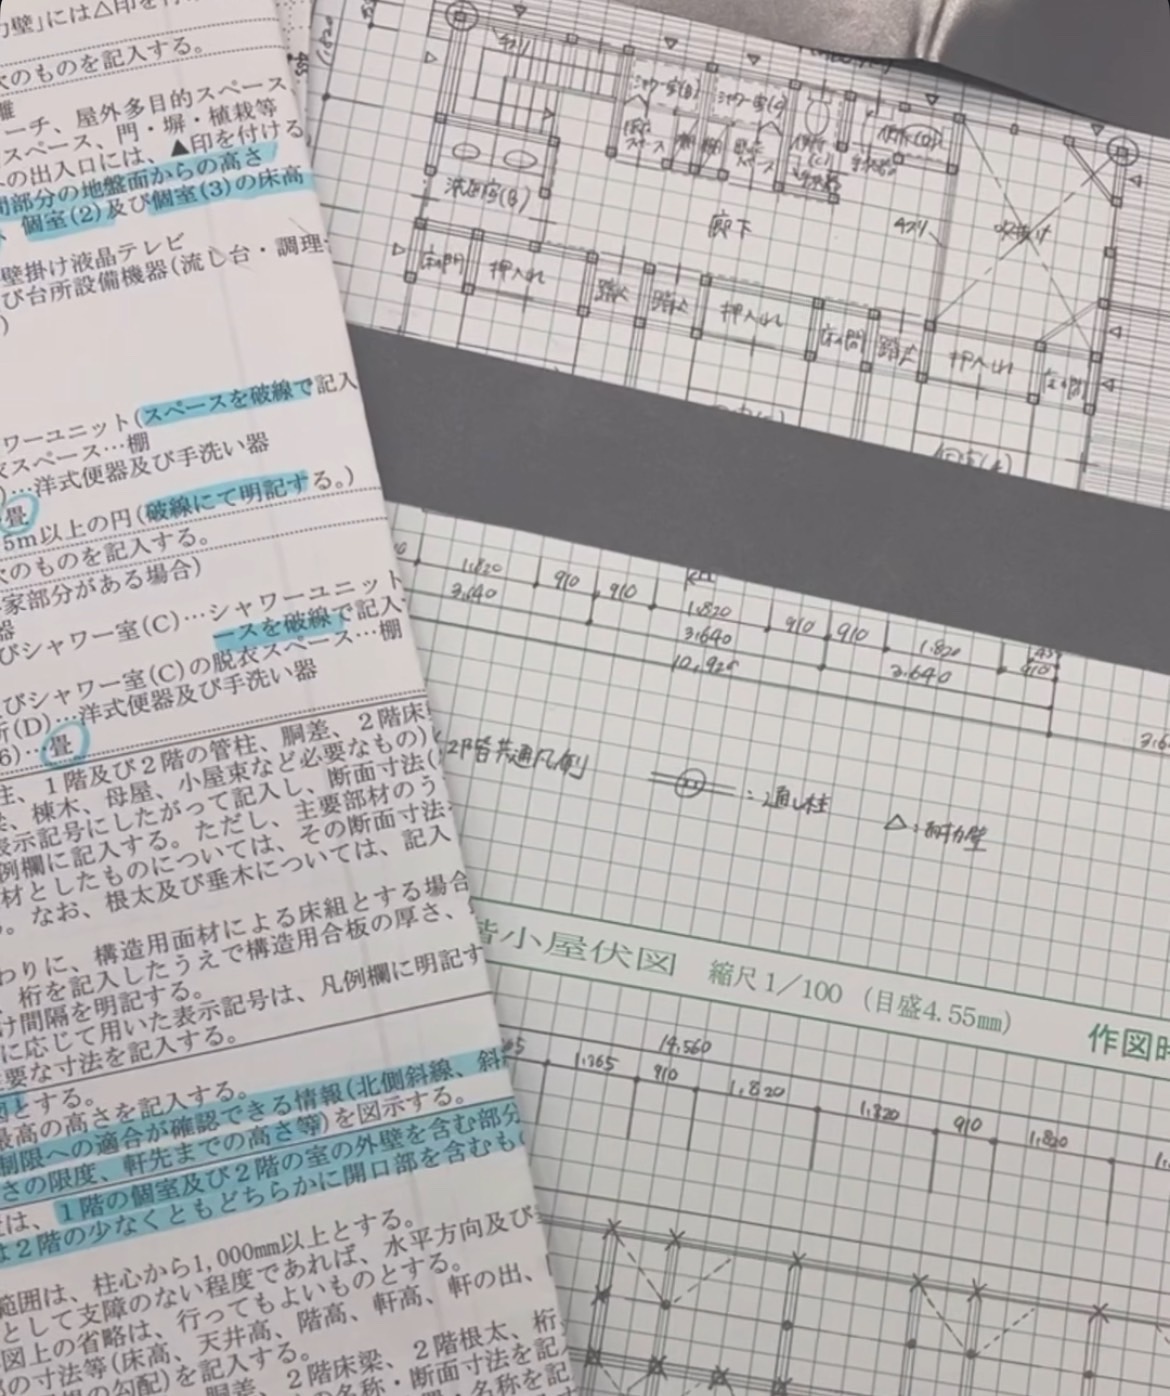 力壁」には△印を付け
次のものを記入する。
ーチ、屋外多目的スペース
スペース、門・塀・植栽等
の出入口には、▲印を付ける
部分の地盤面からの高さ
個室(2)及び個室(3)の床高
壁掛け液晶テレビ
び台所設備機器(流し台・調理
)
ワーユニット(スペースを破線で記入
衣スペース…棚
)…洋式便器及び手洗い器
畳
5m以上の円(破線にて明記する。)
次のものを記入する。
家部分がある場合)
器
びシャワー室(C)…シャワーユニット
ースを破線で記入
びシャワー室(C)の脱衣スペース…棚
所(D)…洋式便器及び手洗い器
6)…畳
柱、1階及び2階の管柱、胴差、2階床
、棟木、母屋、小屋束など必要なもの)
表示記号にしたがって記入し、断面寸法(
例欄に記入する。ただし、主要部材のう
材としたものについては、その断面寸法
。なお、根太及び垂木については、記入
わりに、構造用面材による床組とする場合
、桁を記入したうえで構造用合板の厚さ、
け間隔を明記する。
に応じて用いた表示記号は、凡例欄に明記す
主要な寸法を記入する。
図とする。
最高の高さを記入する。
制限への適合が確認できる情報(北側斜線、斜
さの限度、軒先までの高さ等)を図示する。
は、1階の個室及び2階の室の外壁を含む部分
は2階の少なくともどちらかに開口部を含むも
範囲は、柱心から1,000mm以上とする。
として支障のない程度であれば、水平方向及び
図上の省略は、行ってもよいものとする。
の寸法等(床高、天井高、階高、軒高、軒の出、
の勾配)を記入する。
胴差、2階床梁、2階根太、桁
の名称・断面寸法を記
シャワー室(B)
シャワー室(C)
脱衣スペース
棚
棚
脱衣スペース
便所(C)
便所(D)
洗面室(B)
廊下
手すり
吹抜け
床の間
押入れ
踏込
踏込
押入れ
床の間
踏込
押入れ
床の間
1,820
910
910
1,820
910
910
1,820
910
3,640
3,640
3,640
10,920
2階共通凡例
:通し柱
△:耐力壁
階小屋伏図 縮尺1/100 (目盛4.55㎜)
作図時
14,560
1,365
910
1,820
1,820
910
1,820